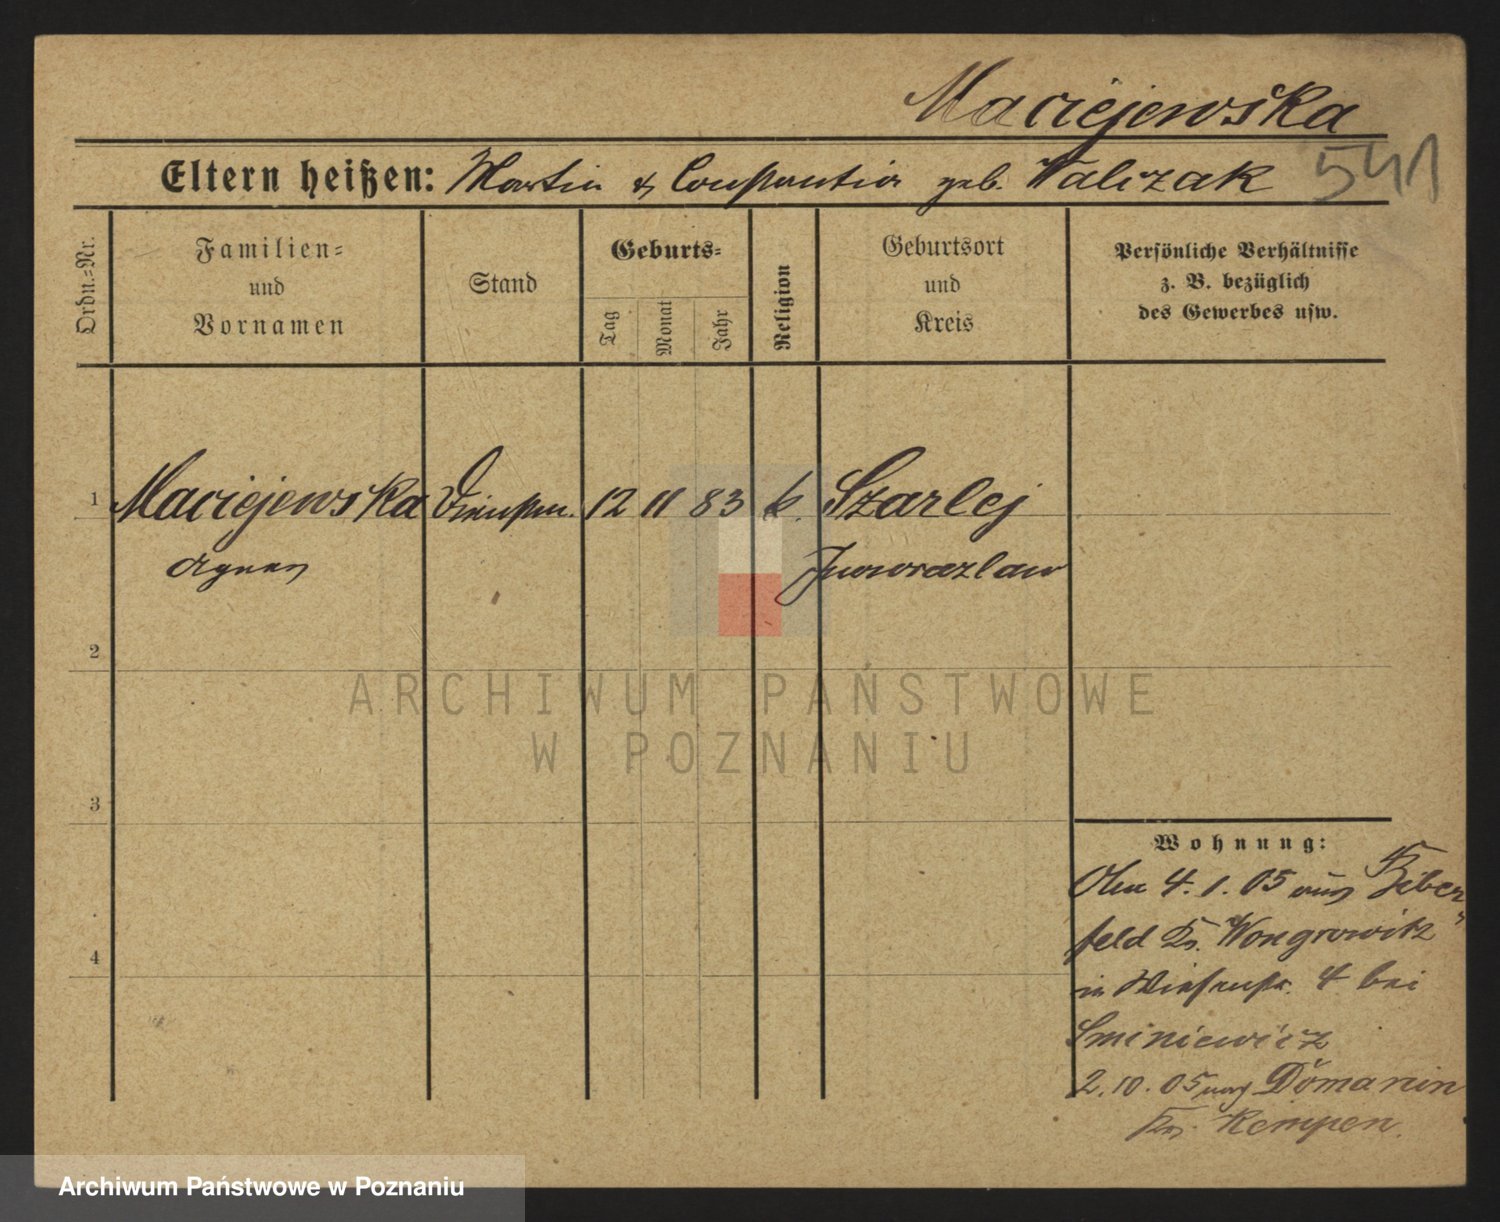 Maciejewska
541
Eltern heißen: Martin & Constantia geb. Walczak
Ordn.=Nr.
Familien=
und
Vornamen
Stand
Geburts=
Tag
Monat
Jahr
Religion
Geburtsort
und
Kreis
Persönliche Verhältnisse
z. B. bezüglich
des Gewerbes usw.
1 Maciejewska Dienstm. 12 11 83 k. Szarlej
Agnes Inowrazlaw
2
ARCHIWUM PAŃSTWOWE
W POZNANIU
3
Wohnung:
4. 1. 05 aus
feld Kr. Wongrowitz
4
in Wiesenstr. 4 bei
Sminiewicz
2. 10. 05 nach Domanin
Kr. Kempen.
Archiwum Państwowe w Poznaniu